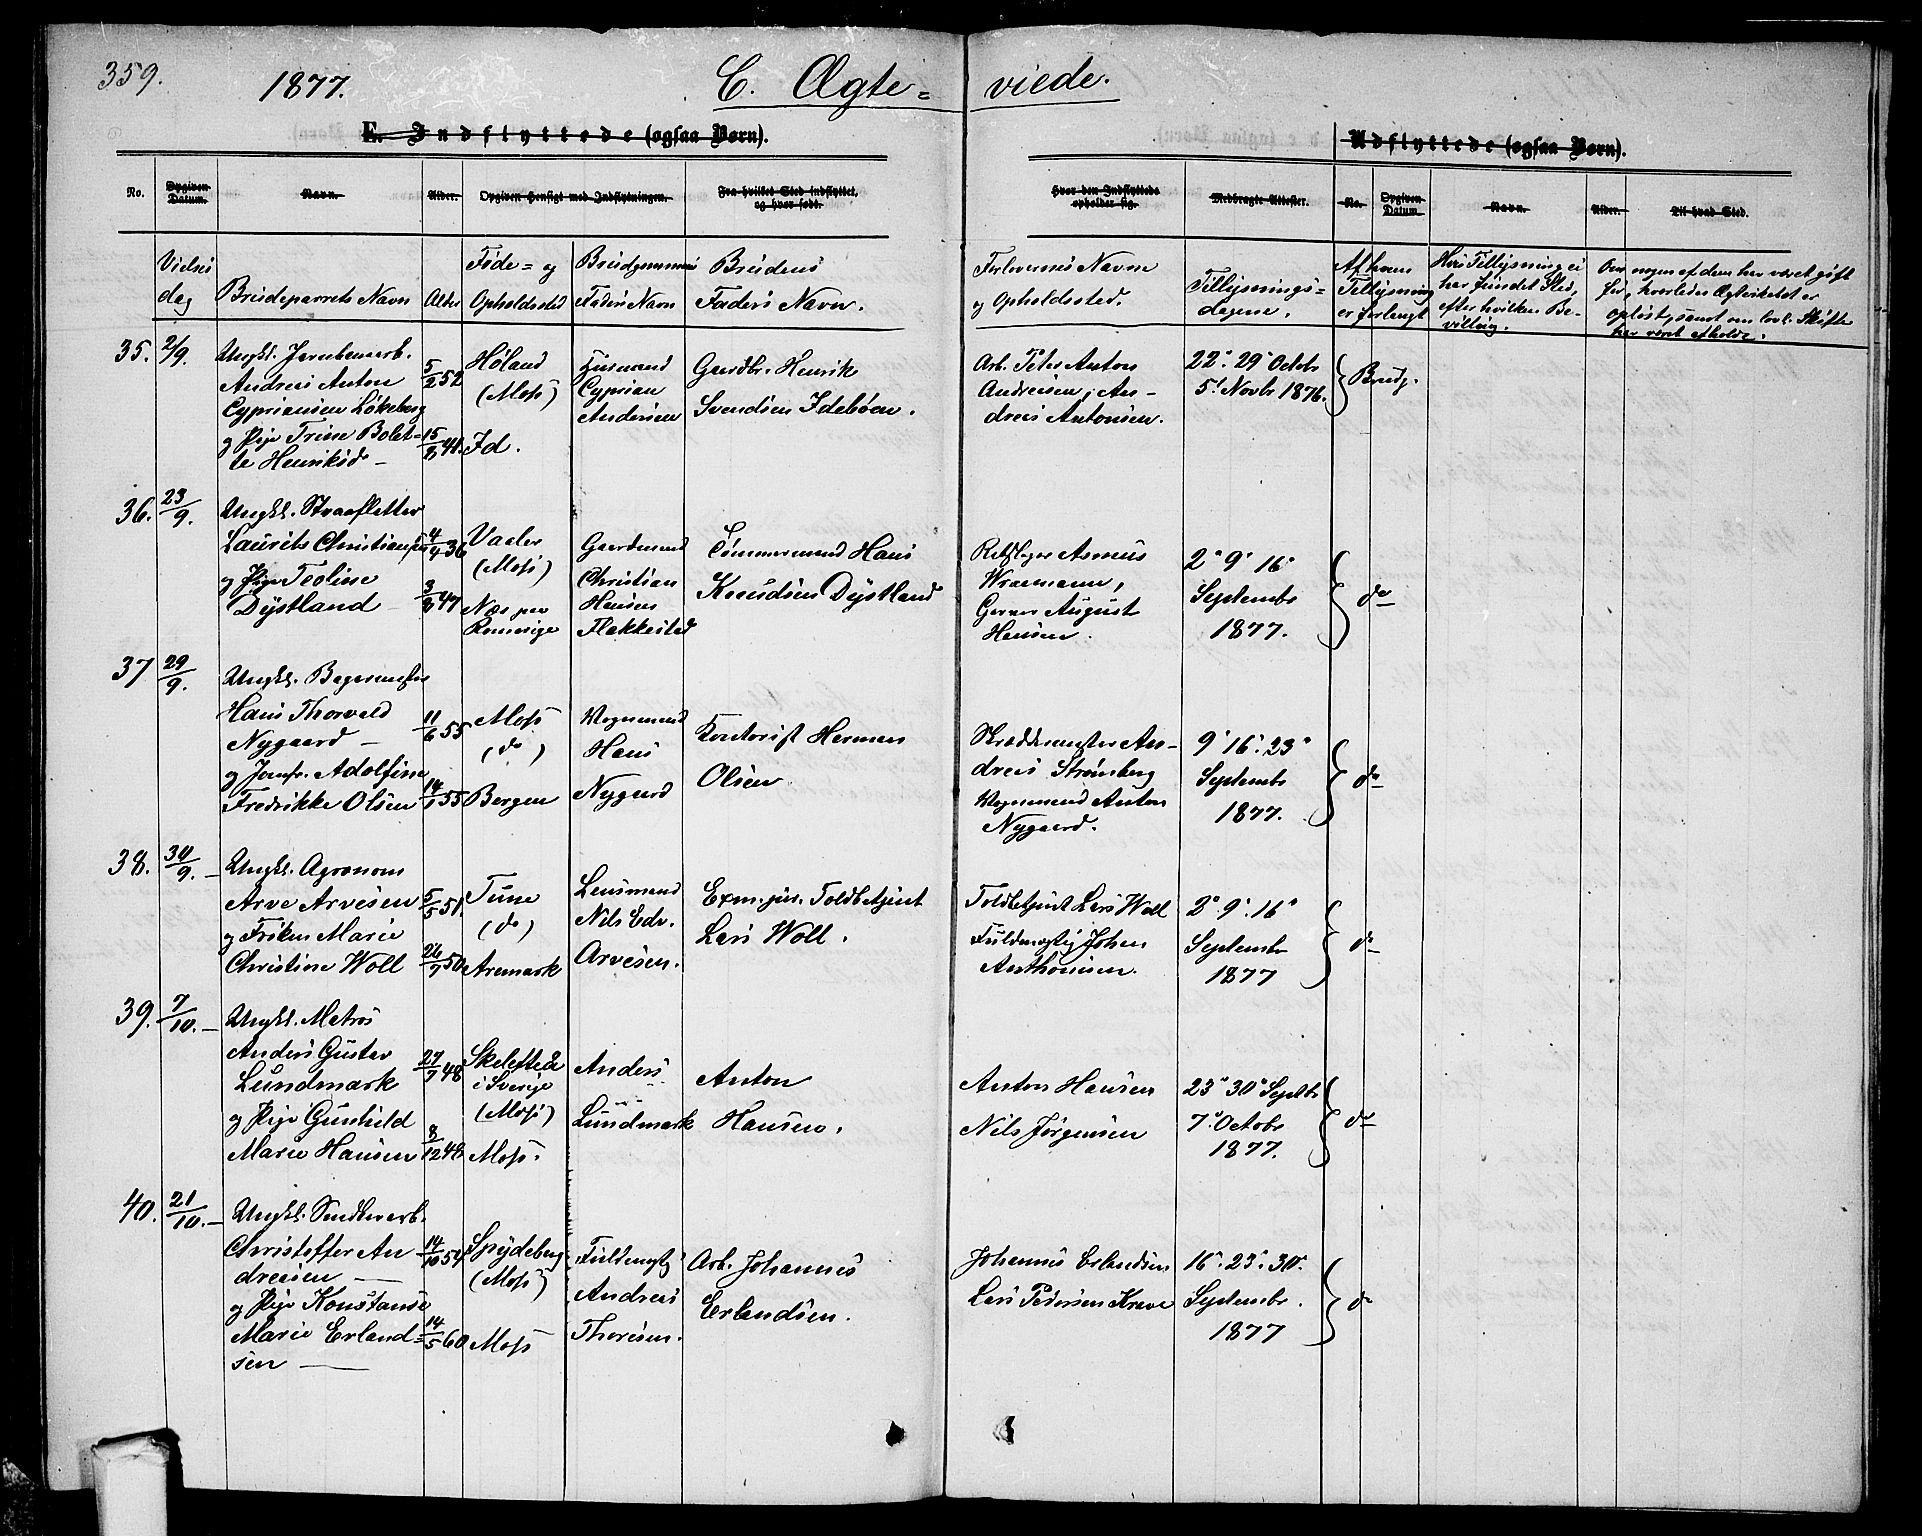 359.
1877.
C. Ægte= viede.
E. Indflyttede (ogsaa Børn).
Udflyttede (ogsaa Børn).
No. Opgiven Datum. Navn. Alder. Opgiven Hensigt med Indflytningen. Fra hvilket Sted indflyttet, og hvor født.
Hvor den Indflyttede opholder sig. Medbragte Attester. No. Opgiven Datum. Navn. Alder. Til hvad Sted.
Vielses dag
Brudeparrets Navn
Alder
Føde= og Opholdssted
Brudgommens Faders Navn
Brudens Faders Navn.
Forlovernes Navne og Opholdssted.
Tillysnings= dagene.
Af hvem Tillysning er forlangt
Hvis Tillysning ei har fundet Sted, efter hvilken Be- villing.
Om nogen af dem har været gift før, hvorledes Ægteskabet er opløst, samt om lovl. Skifte har været afholdt.
35. 2/9.
Ungkl. Jernbanearb.
Andreas Anton
Cypriansen Løkeberg
og Pige Trine Bolet-
te Henriksd. -
5/2 52
15/8 41.
Høland
(Moss)
Id.
Huusmand
Cyprian
Andersen
Gaardbr. Henrik
Svendsen Idebøen.
Arb. Peter Anton
Andreasen, An-
dreas Antonsen.
22. 29. Octobr
5. Novbr 1876.
Brudg.
36. 23/9.
Ungkl. Straafletter
Laurits Christiansen
og Pige Teoline
Dystland -
4/4 36
3/8 47
Vaaler
(Moss)
Næs paa
Romerige
Gaardmand
Christian
Hansen
Flakkestad
Tømmermand Hans
Knudsen Dystland
Rebslager Asmus
Wraamann,
Garver August
Hansen.
2. 9. 16.
Septembr
1877.
do
37 29/9.
Ungkl. Bagermester
Hans Thorvald
Nygaard -
og Jomfr. Adolfine
Fredrikke Olsen
11/6 55
14/1 55
Moss
(do)
Bergen
Vognmand
Hans
Nygaard
Kontorist Herman
Olsen
Skræddermester An-
dreas Strømberg
Vognmand Anton
Nygaard.
9. 16. 23.
Septembr
1877.
do
38. 30/9. -
Ungkl. Agronom
Arve Arvesen
og Frøken Marie
Christine Woll
5/5 51.
26/7 50
Tune
(do)
Aremark
Lensmand
Nils Edv.
Arvesen.
Exm. jur. Toldbetjent
Lars Woll.
Toldbetjent Lars Woll
Fuldmægtig Johan
Anthonisen.
2. 9. 16.
Septembr
1877
do
39. 7/10. -
Ungkl. Matros
Anders Gustav
Lundmark
og Pige Gunhild
Marie Hansen
27/7 48
8/12 48
Skelefteå
i Sverige
(Moss)
Moss.
Anders
Lundmark
Anton
Hansen.
Anton Hansen
Nils Jørgensen
23. 30. Septbr
7. Octobr
1877.
do
40. 21/10. -
Christoffer An
dreasen -
og Pige Konstanse
Marie Erland=
sen -
14/10 54
14/5 60
Spydeberg
(Moss)
Moss
Fuldmægtig
Andreas
Thoresen.
Arb. Johannes
Erlandsen.
Johannes Erlandsen
Lars Pedersen Kræve
16. 23. 30.
Septembr.
1877
do